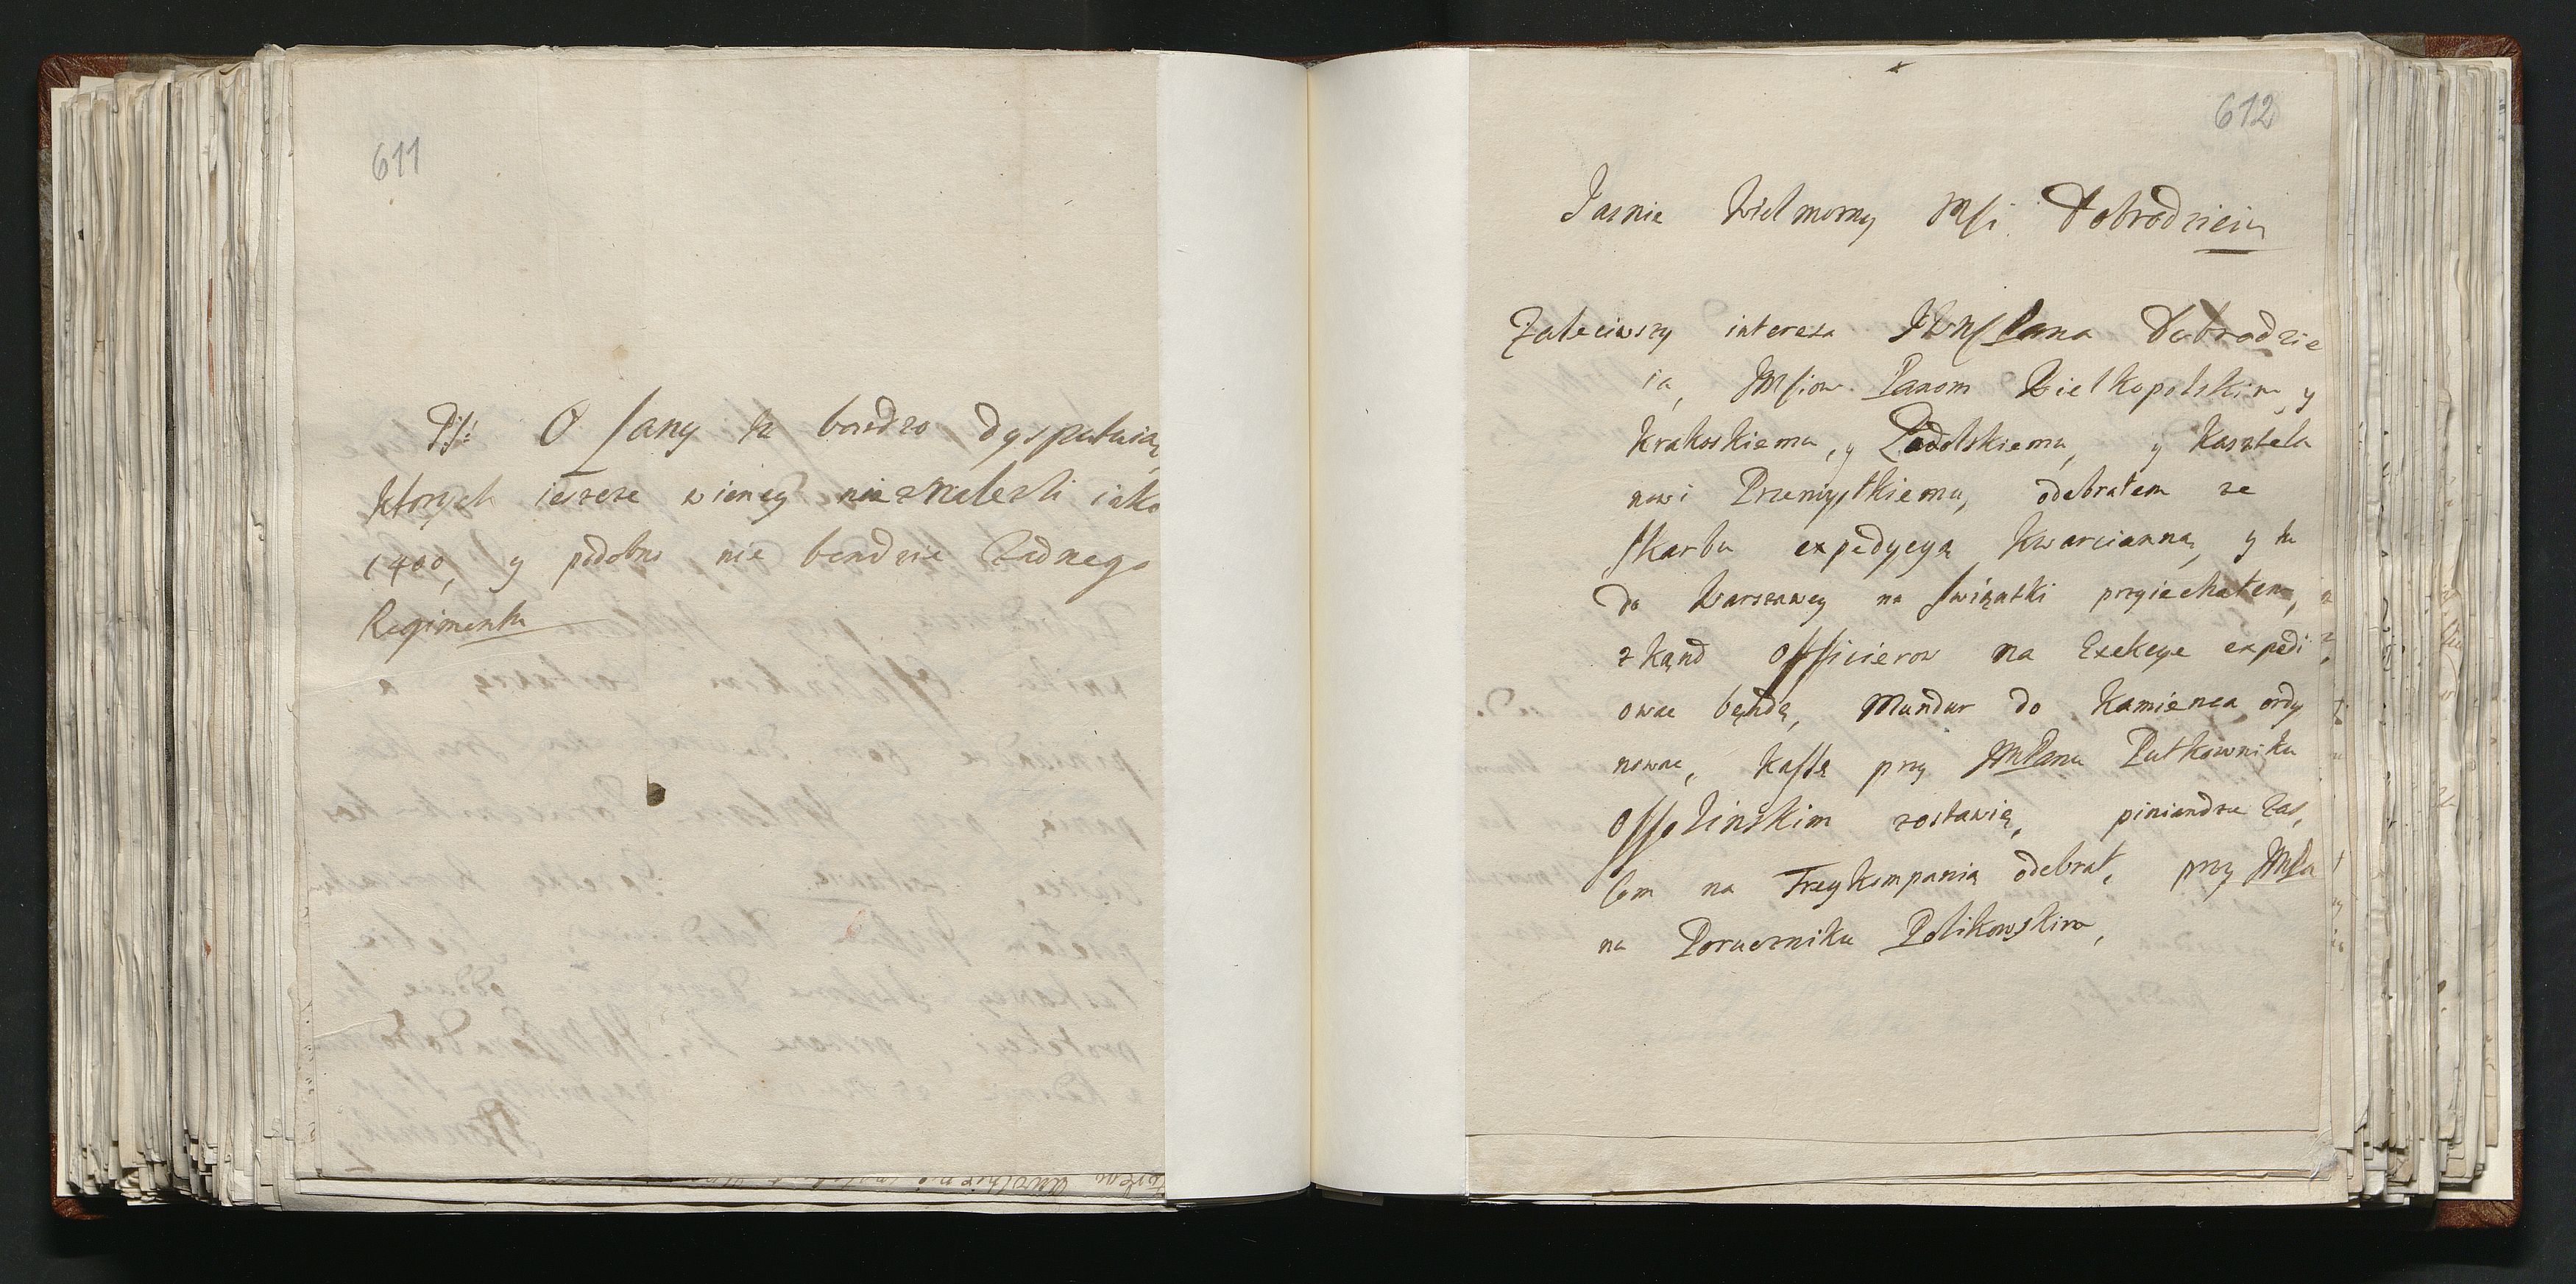 611
Ps: O Łany tu bardzo dysputuią
ktorych ieszcze wiency nie znalezli iako
1400, y podobno nie bendzie Żadnego
Regimentu
612
Iasnie Wielmozny Msci Dobrodzieiu
Zaleciwszy interesa JWMsPana Dobrodzie
ia, JMsciow Panom Wielkopolskim, y
Krakoskiemu, y Podolskiemu, y Kasztela
nowi Przemyskiemu, odebrałem ze
skarbu expedycyą kwarcianną, y tu
do Warszawy na swiątki przyiechałem,
zkąnd officierow na Exekcye expedi
owac bęndę, Mundur do Kamienca ordy
nowac, kassę przy JmPanu Pułkowniku
Ossolinskim zostawię, piniandze Zas,
com na Trzy kompanią odebrał, przy JmPa
nu Poruczniku Polikowskim,